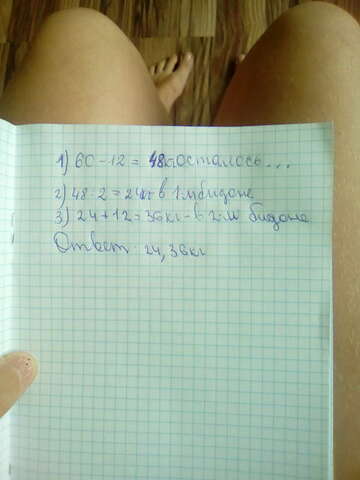 1) 60-12=48кг осталось...
2) 48:2=24кг в 1м бидоне
3) 24+12=36кг - в 2-м бидоне
Ответ: 24, 36кг